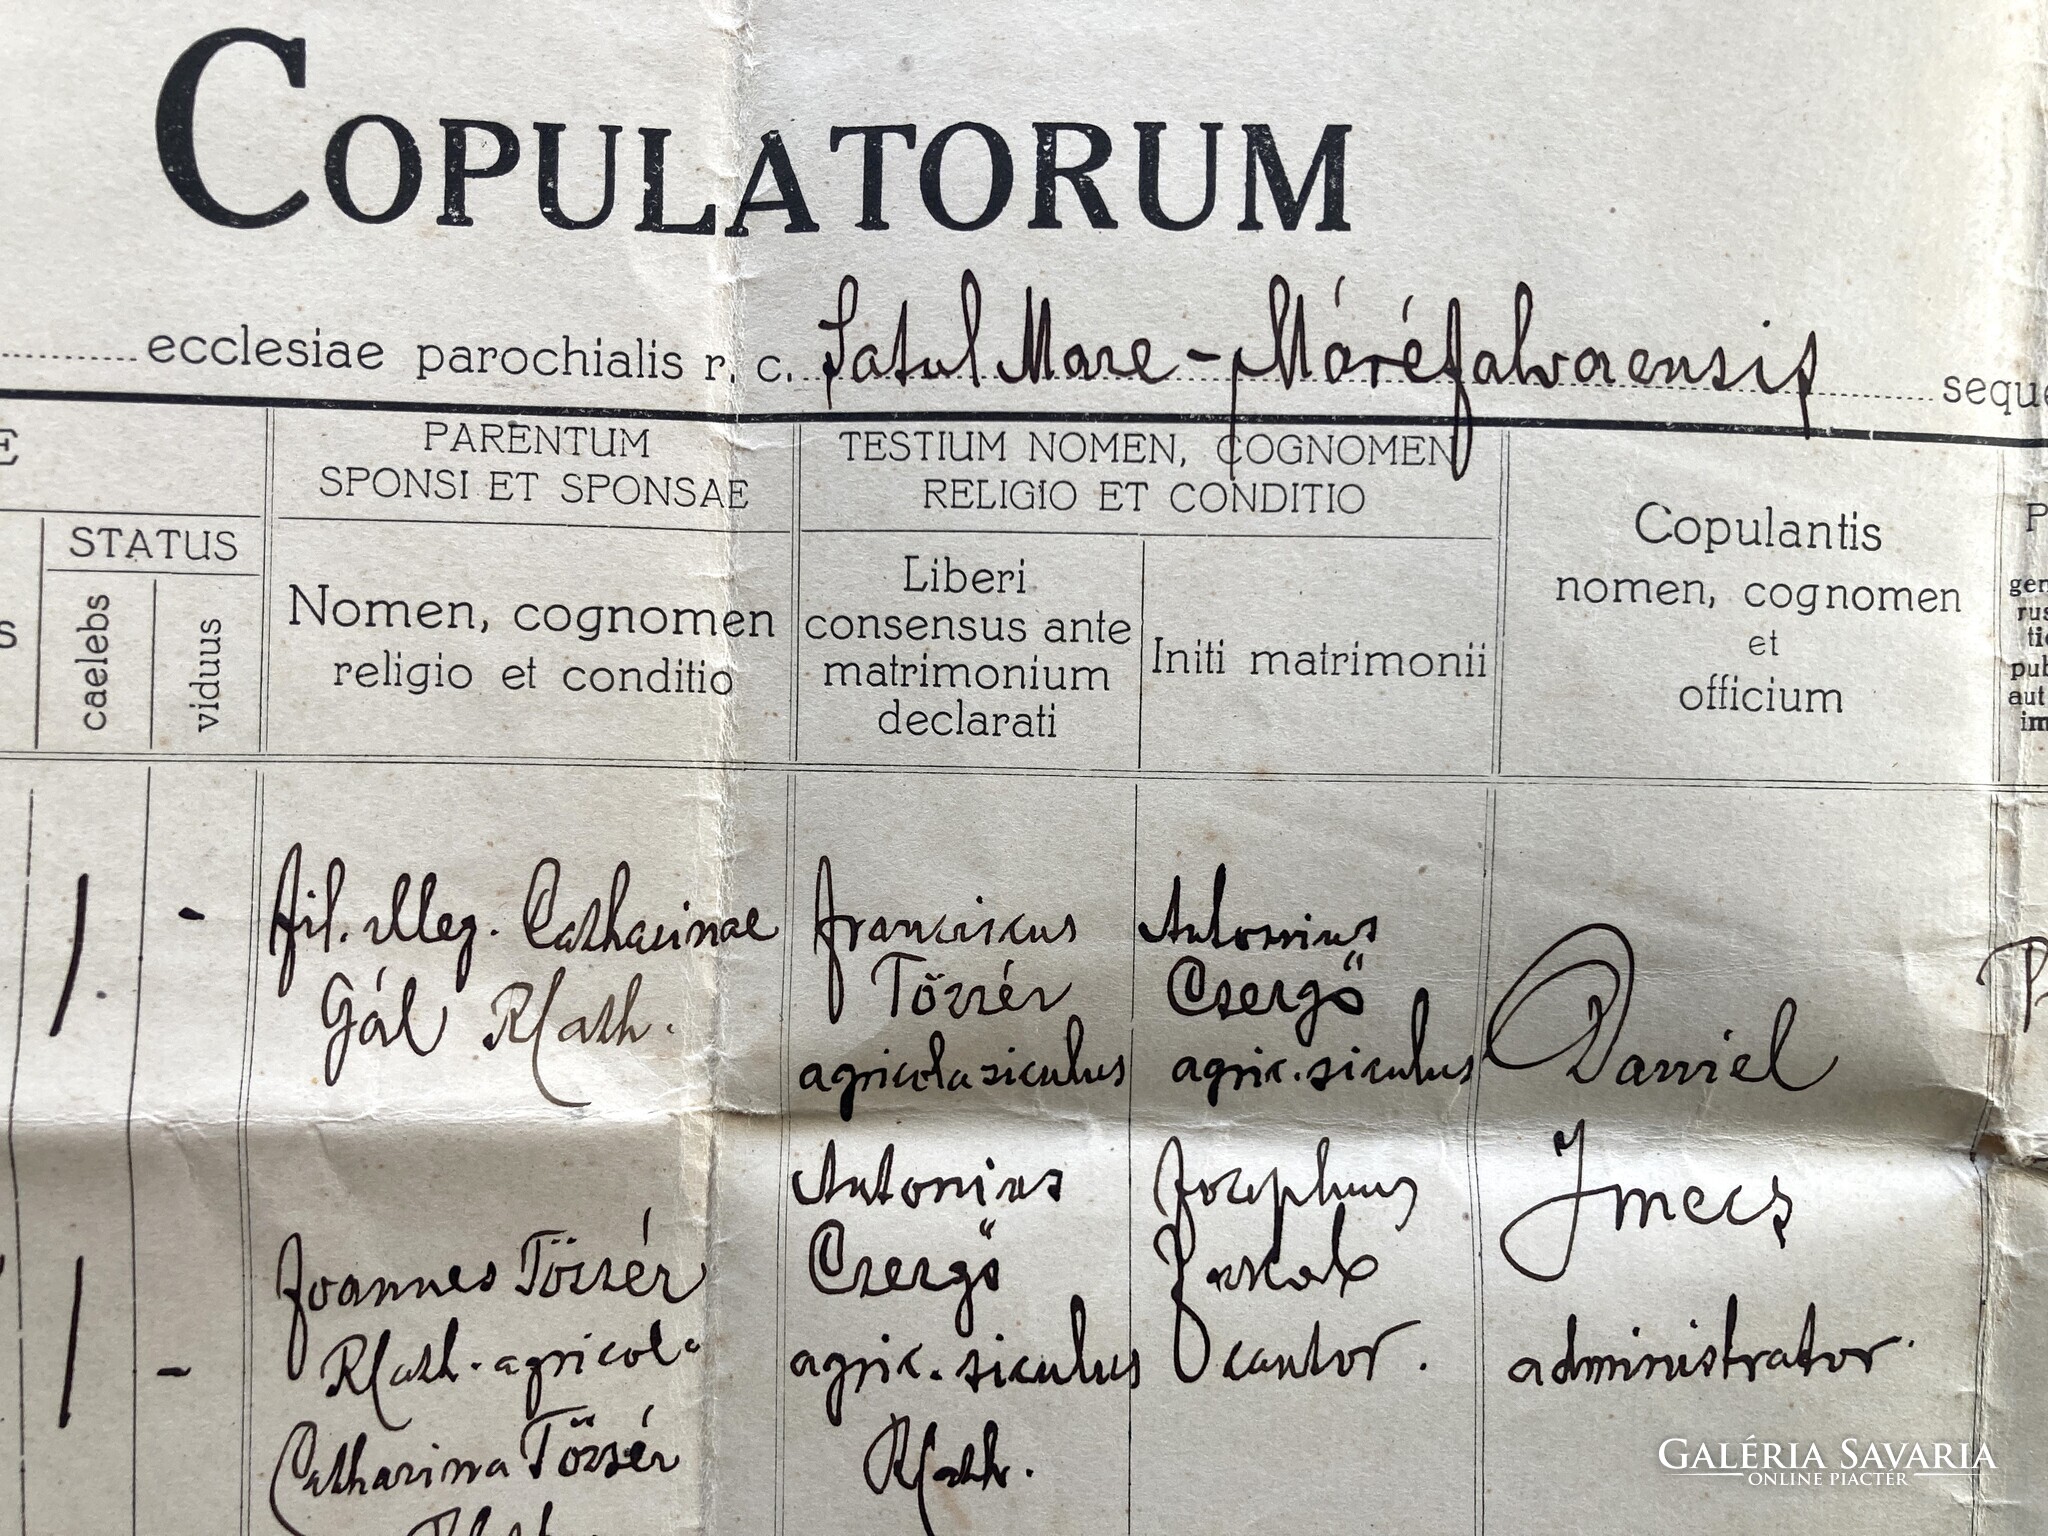 COPULATORUM
ecclesiae parochialis r. c. Satul Mare - Máréfalvaensis seque
E
PARENTUM
SPONSI ET SPONSAE
TESTIUM NOMEN, COGNOMEN
RELIGIO ET CONDITIO
STATUS
S
caelebs
viduus
Nomen, cognomen
religio et conditio
Liberi
consensus ante
matrimonium
declarati
Initi matrimonii
Copulantis
nomen, cognomen
et
officium
P
gen
rus
tic
pub
aut
im
1
-
Fil. illeg. Catharinae
Gál R Cath.
Franciscus
Tözsér
agricola siculus
Antonius
Csergő
agric. siculus
Daniel
Imecs
administrator.
1
-
Joannes Tözsér
R Cath. agricola
Catharina Tözsér
Antonius
Csergő
agric. siculus
R Cath.
Josephus
Jakab
cantor.
GALÉRIA SAVARIA
ONLINE PIACTÉR